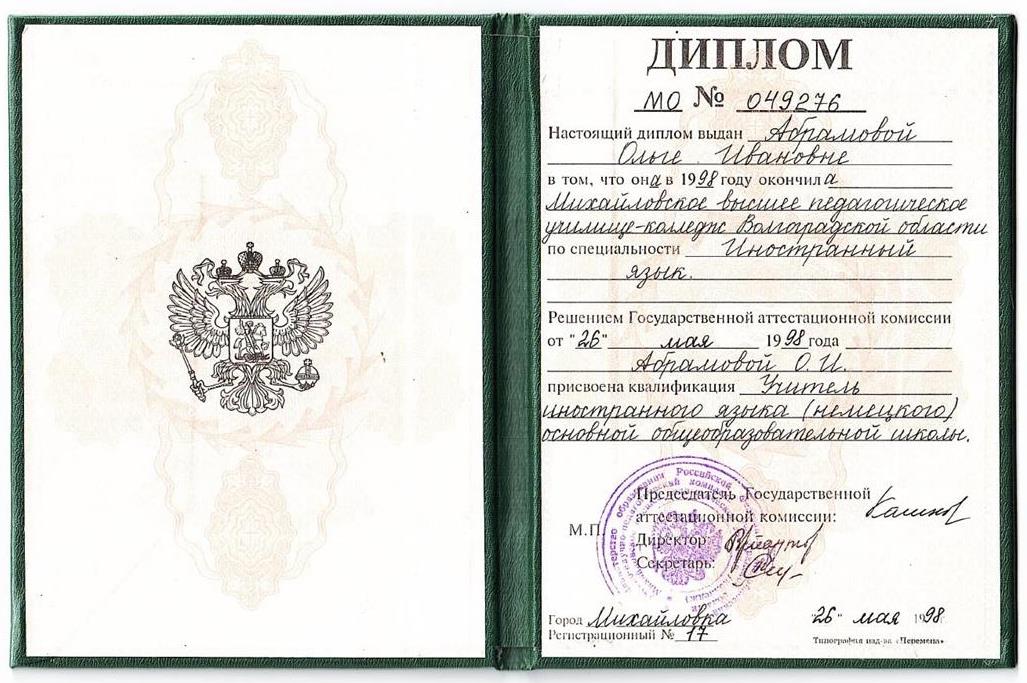 ДИПЛОМ
МО № 049276
Настоящий диплом выдан Абрамовой
Ольге Ивановне
в том, что она в 1998 году окончила
Михайловское высшее педагогическое
училище-колледж Волгоградской области
по специальности Иностранный
язык.
Решением Государственной аттестационной комиссии
от "26" мая 1998 года
Абрамовой О. И.
присвоена квалификация Учитель
иностранного языка (немецкого)
основной общеобразовательной школы.
Председатель Государственной
аттестационной комиссии:
М.П.
Директор:
Секретарь:
образования Российской
Город Михайловка "26" мая 1998 г.
Регистрационный № 17
Типография изд-ва «Перемена»